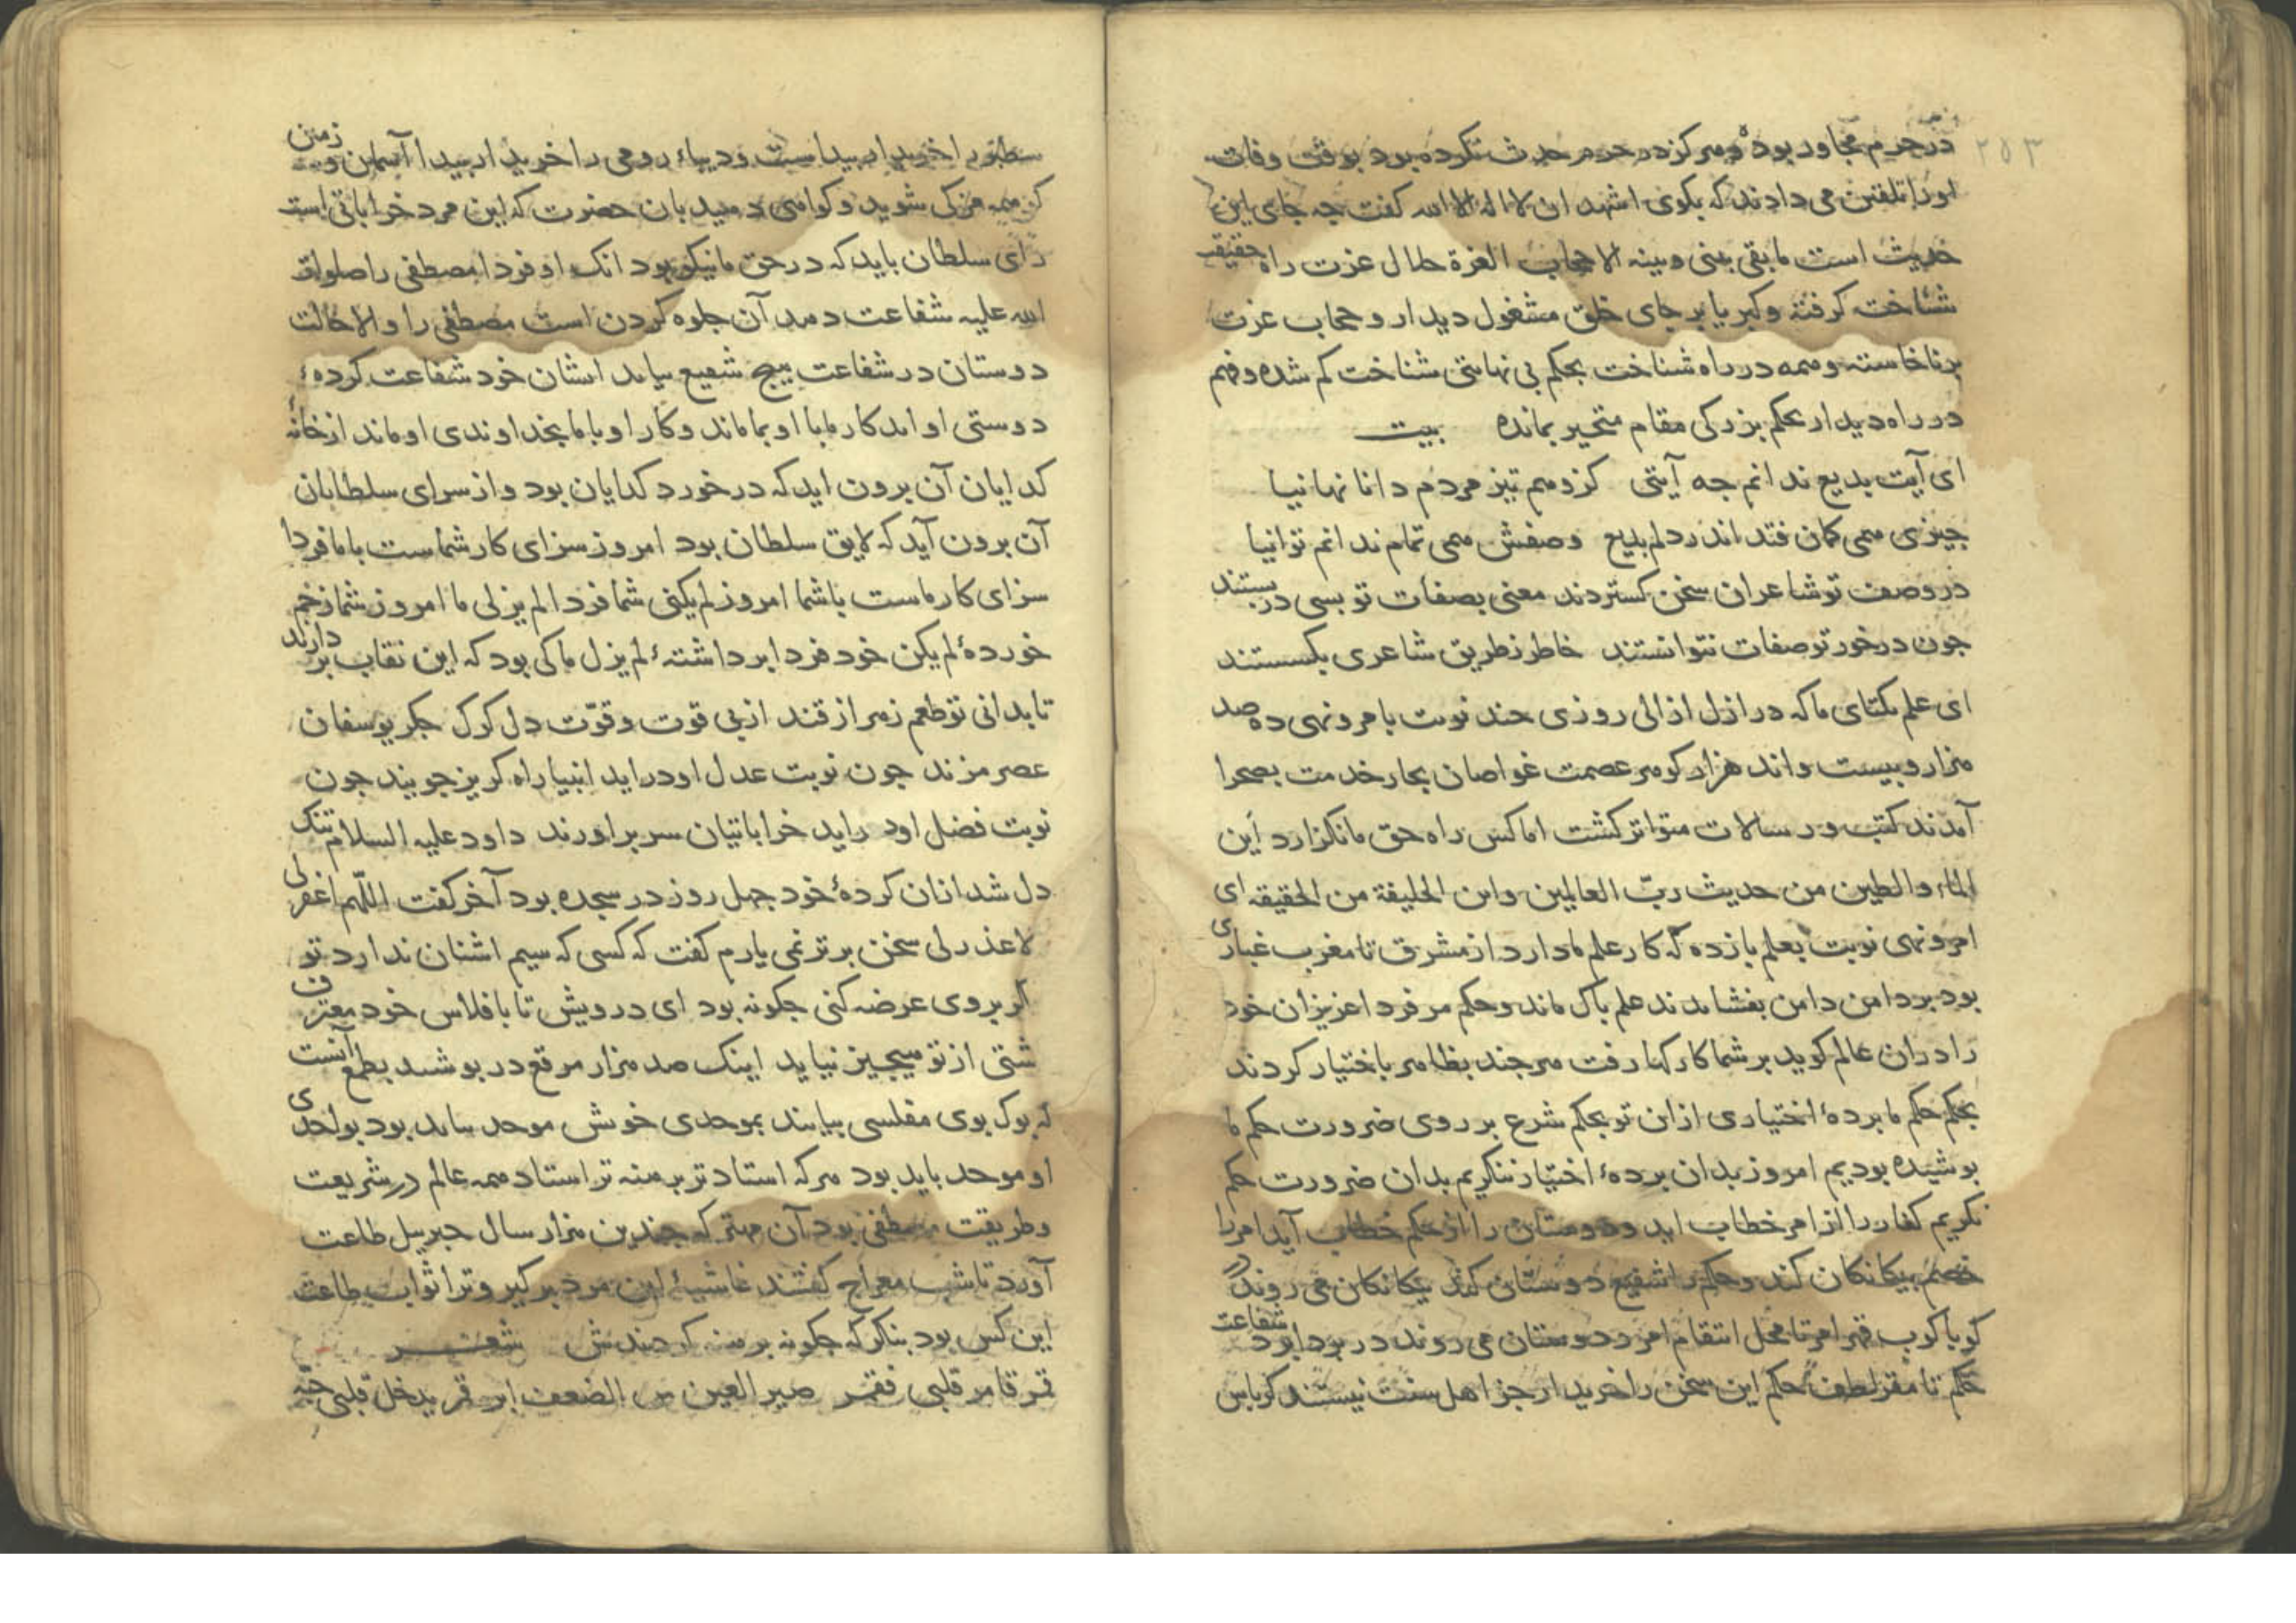 ۲۵۳
در حرم مجاور بوده و هرکز در حرم حدث نکرده بود بوقت وفات
اورا تلقین می دادند که بکوی اشهد ان لا اله الا الله کفت چه جای این
حدیث است ما بقی بینی و بینه الا حجاب العزة جلال عزت راه حقیقت
شناخت کرفته و کبریا بر جای خلق مشغول دیدار و حجاب عزت
برناخاسته و همه در راه شناخت بحکم بی نهایتی شناخت کم شده و فهم
در راه دیدار بحکم بزرکی مقام متحیر بمانده بیت
ای آیت بدیع ندانم چه آیتی کز وهم تیز مردم دانا نهانیا
چیزی همی کمان فتد اندر دلم بدیع وصفش همی تمام ندانم توانیا
در وصف تو شاعران سخن کستردند معنی بصفات تو بسی در بستند
جون درخور تو صفات نتوانستند خاطر ز طریق شاعری بکسستند
ای علم یکتای ما که در ازل ازالی روزی جند نوبت با مر و نهی ده صد
هزار و بیست و اند هزار کوهر عصمت غواصان بحار خدمت بصحرا
آمدند کتب و رسالات متواتر کشت اما کس راه حق ما نکزارد این
الماء والطین من حدیث ربّ العالمین واین الخلیفة من الحقیقه ای
امر و نهی نوبت بعلم بازده که کار علم ما دارد از مشرق تا مغرب غباری
بود بر دامن دامن بفشاندند علم پاک ماند و حکم مر فردا عزیزان خود
را دران عالم کوید بر شما کارکها رفت هرجند بظاهر باختیار کردند
بحکم حکم ما بردۀ اختیاری ازان تو بحکم شرع بر روی ضرورت حکم ما
پوشیده بودیم امروز بدان بردۀ اختیار ننکریم بدان ضرورت حکم
نکریم کفار را از امر خطاب اید و دوستان را از حکم خطاب آید امر را
خصم بیکانکان کند و حکم را شفیع دوستان کند بیکانکان می روند در
کوباکوب قهر امر تا محل انتقام امر و دوستان می روند در بردابرد شفاعت
حکم تا مقر لطف حکم این سخن را خریدار جز اهل سنت نیستند کرباس
سطبر را خریدار پیداست و دیباء رومی را خریدار پیدا آسمان و زمین
کر همه مزکی شوید و کواهی دهید بان حضرت که این مرد خراباتی است
رای سلطان باید که در حق ما نیکو بود انک او فردا مصطفی را صلوات
الله علیه شفاعت دهد آن جلوه کردن است مصطفی را والا حالت
دوستان در شفاعت هیج شفیع نیاید ایشان خود شفاعت کردۀ
دوستی او اند کار ما با او بما ماند و کار او با ما بخداوندی او ماند از خانۀ
کدایان آن برون اید که درخورد کدایان بود و از سرای سلطانان
آن برون آید که لایق سلطان بود امروز سزای کار شماست با ما فردا
سزای کار ماست با شما امروز لم یکنی شما فردا لم یزلی ما امروز شما زخم
خوردۀ لم یکن خود فردا برداشتۀ لم یزل ما کی بود که این نقاب بر دارند
تا بدانی تو طعم زهر از قند از بی قوت و قوّت دل کرک جکر یوسفان
عصر مزند جون نوبت عدل او دراید انبیا راه کریز جویند جون
نوبت فضل او دراید خراباتیان سر براورند داود علیه السلام تنک
دل شد ازان کردۀ خود جهل روز در سجده بود آخر کفت اللّهم اغفر لی
لا عذر لی سخن برتر نمی یارم کفت که کسی که سیم اشنان ندارد تو
اکر بروی عرضه کنی جکونه بود ای درویش تا با فلاس خود معترف
شتی از تو هیجیز نیاید اینک صد هزار مرقع در پوشند بطمع آنست
که بوک بوی مفلسی بیابند بموحدی خوش موحد نباید بود بواحدی
او موحد باید بود هرکه استادتر برهنه تر استاد همه عالم در شریعت
و طریقت مصطفی بود آن مهتر که جندین هزار سال جبریل طاعت
آورد تا شب معراج کفتند غاشیۀ این مرد برکیر و ترا ثواب طاعت
این کس بود بنکر که جکونه برهنه کردندش شعر
قمر قامر قلبی فقمر الضعف ابر قمر یدخل قلبی